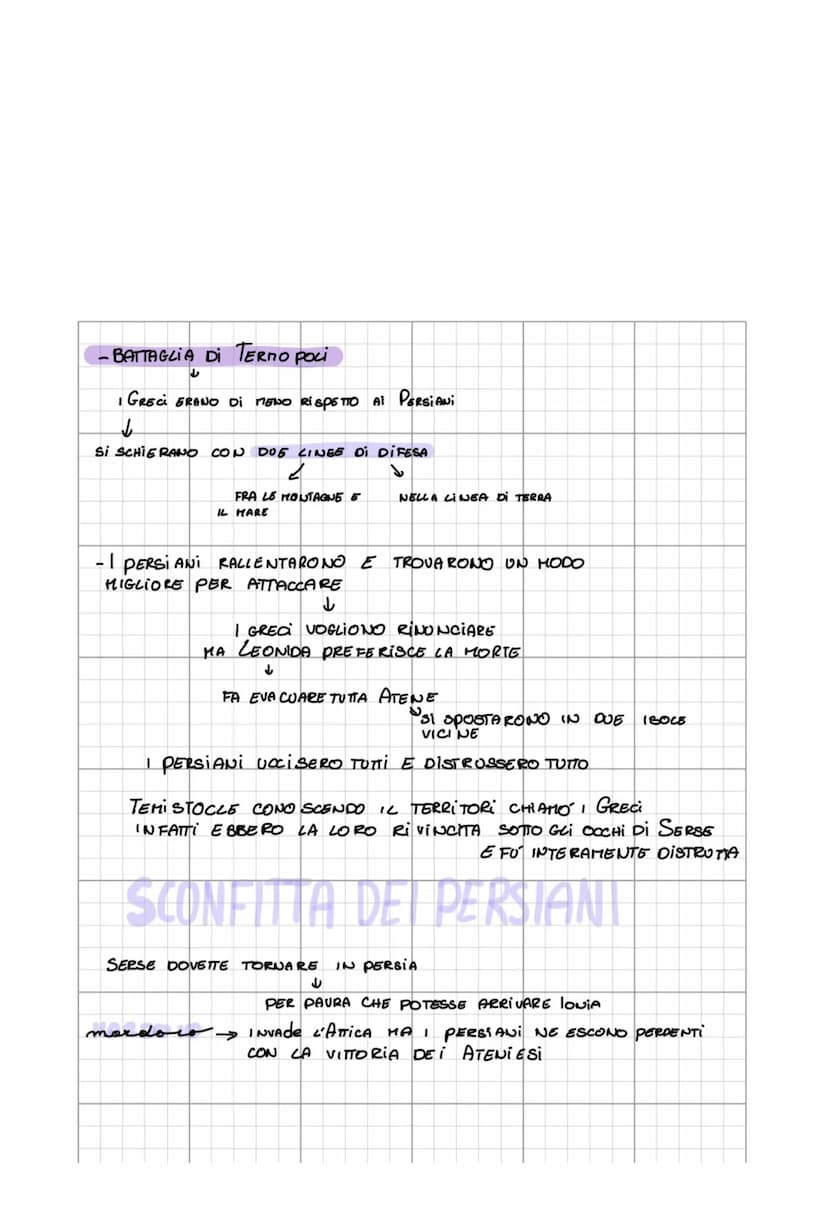 - BATTAGLIA Di TERMOPOLi
I GRECi ERANO Di MENO RISPETTO AI PERSiANi
Si SCHIERANO CON DUE LINEE Di DIFESA
FRA LE MONTAGNE E NELLA LiNEA Di TERRA
IL MARE
- I PERSiANi RALLENTARONO E TROVARONO UN MODO
MIGLIORE PER ATTACCARE
I GRECi VOGLIONO RINUNCIARE
MA LEONIDA PREFERiSCE LA MORTE
FA EVACUARE TUTTA ATENE
SI SPOSTARONO IN DUE ISOLE
VICINE
I PERSiANi UCCISERO TUTTI E DiSTRUSSERO TUTTO
TEMISTOCLE CONOSCENDO IL TERRITORi CHIAMO' I GRECi
INFATTi EBBERO LA LORO RIVINCITA SOTTO GLI OCCHI Di SERSE
E FU' INTERAMENTE DiSTRUTTA
SCONFITTA DEI PERSIANI
SERSE DOVETTE TORNARE IN PERSiA
PER PAURA CHE POTESSE ARRIVARE IONIA
mardonio → INVADE L'ATTICA MA I PERSIANI NE ESCONO PERDENTI
CON LA VITTORIA DEi ATENiESi